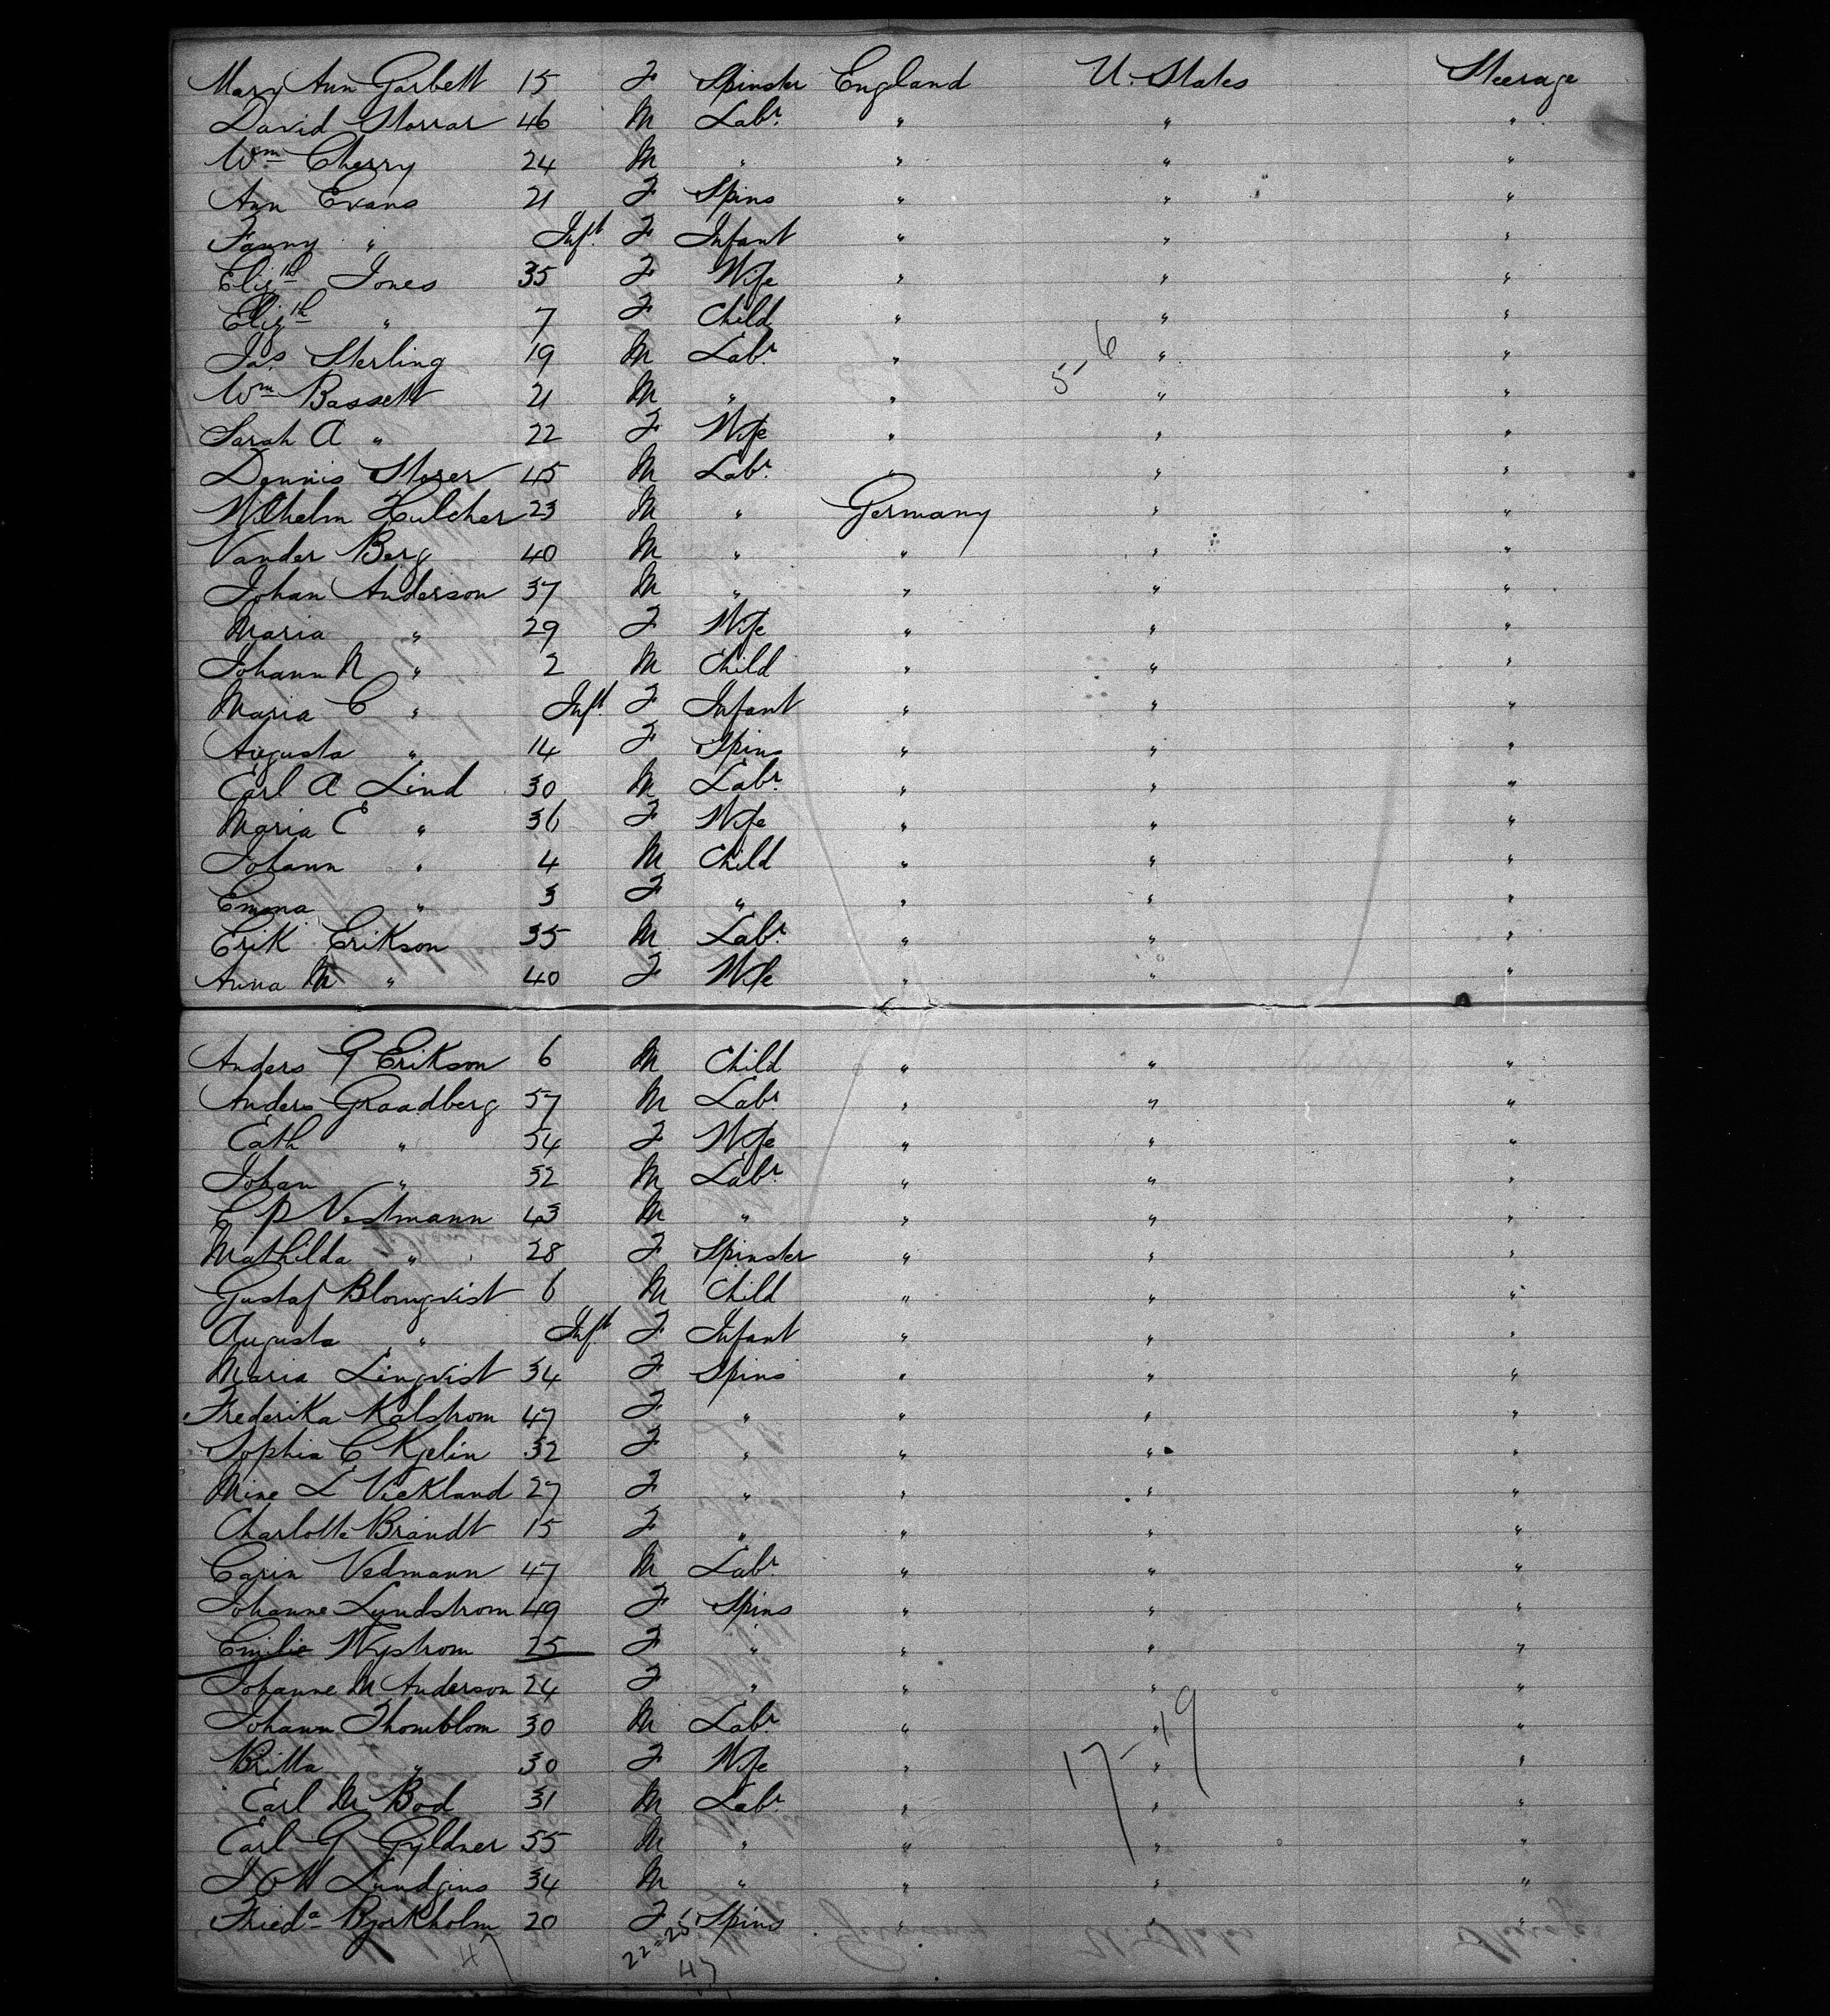 Mary Ann Garbett 15 F Spinster England U. States Steerage
David Storrar 46 M Labr. " " "
Wm Cherry 24 M " " " "
Ann Evans 21 F Spins " " "
Fanny " Inft. F Infant " " "
Elizth Jones 35 F Wife " " "
Elizth " 7 F Child " " "
Jas. Sterling 19 M Labr " " "
5-6
Wm Bassett 21 M " " " "
Sarah A " 22 F Wife " " "
Dennis Storer 45 M Labr. " " "
Wilhelm Hulcher 23 M " Germany " "
Vander Berg 40 M " " " "
Johan Anderson 37 M " " " "
Maria " 29 F Wife " " "
Johann N " 2 M Child " " "
Maria C " Inft. F Infant " " "
Augusta " 14 F Spins " " "
Carl A Lind 30 M Labr. " " "
Maria C " 36 F Wife " " "
Johann " 4 M Child " " "
Emma " 3 F " " " "
Erik Erikson 35 M Labr. " " "
Anna M " 40 F Wife " " "
Anders G Erikson 6 M Child " " "
Anders Graadberg 57 M Labr. " " "
Cath " 54 F Wife " " "
Johan " 32 M Labr. " " "
C P Vestmann 43 M " " " "
Mathilda " 28 F Spinster " " "
Gustaf Blomqvist 6 M Child " " "
Augusta " Inft F Infant " " "
Maria Linqvist 34 F Spins " " "
Frederika Kalstrom 47 F " " " "
Sophia C Kjelin 32 F " " " "
Mine L Vickland 27 F " " " "
Charlotte Brandt 15 F " " " "
Carin Vedmann 47 M Labr. " " "
Johanne Lyndstrom 49 F Spins " " "
Emilie Nystrom 25 F " " " "
Johanne M Anderson 24 F " " " "
Johann Thomblom 30 M Labr. " " "
17-19
Britta " 30 F Wife " " "
Carl M Bod 31 M Labr. " " "
Carl G Gyldner 55 M " " " "
J O W Lundgins 34 M " " " "
Frieda Bjorkholm 20 F Spins " " "
47 22=25
47